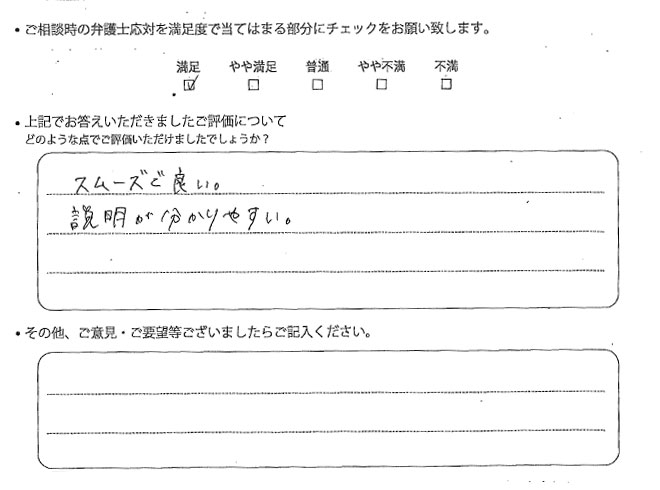 ・ご相談時の弁護士応対を満足度で当てはまる部分にチェックをお願い致します。
満足 やや満足 普通 やや不満 不満
☑ □ □ □ □
・上記でお答えいただきましたご評価について
どのような点でご評価いただけましたでしょうか？
スムーズで良い。
説明が分かりやすい。
・その他、ご意見・ご要望等ございましたらご記入ください。